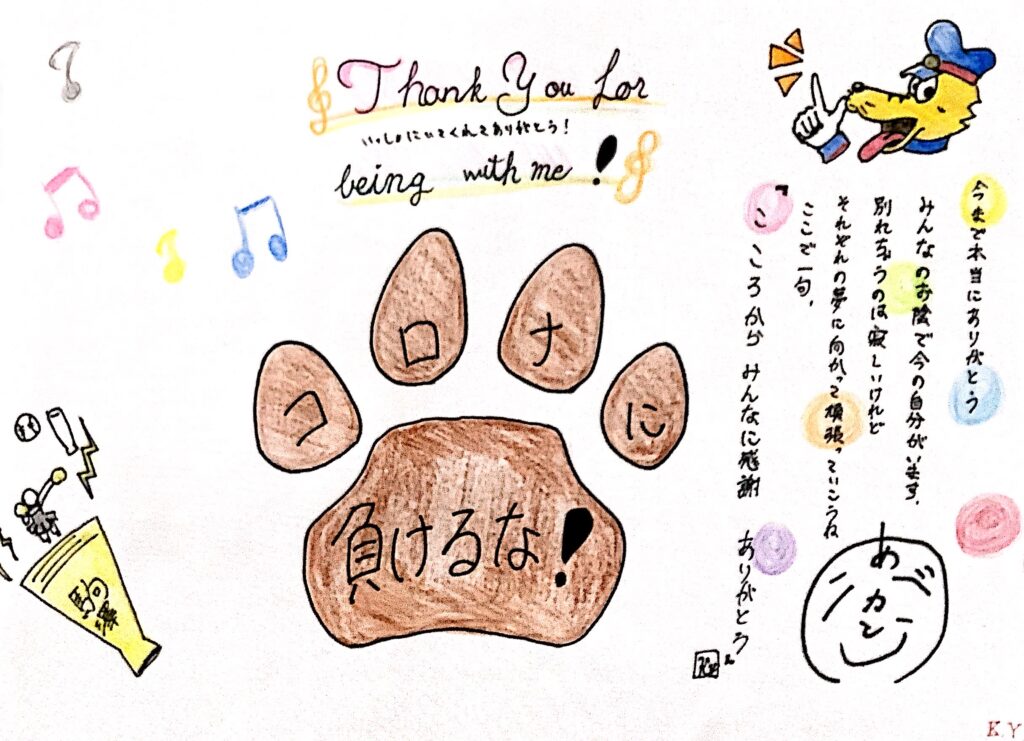 Thank You for
いっしょにいてくれてありがとう！
being with me !
コロナに
負けるな!
今まで本当にありがとう
みんなのお陰で今の自分がいます。
別れちゃうのは寂しいけれど
それぞれの夢に向かって頑張っていこうね
ここで一句、
『こころから みんなに感謝 ありがとう』
K.Y